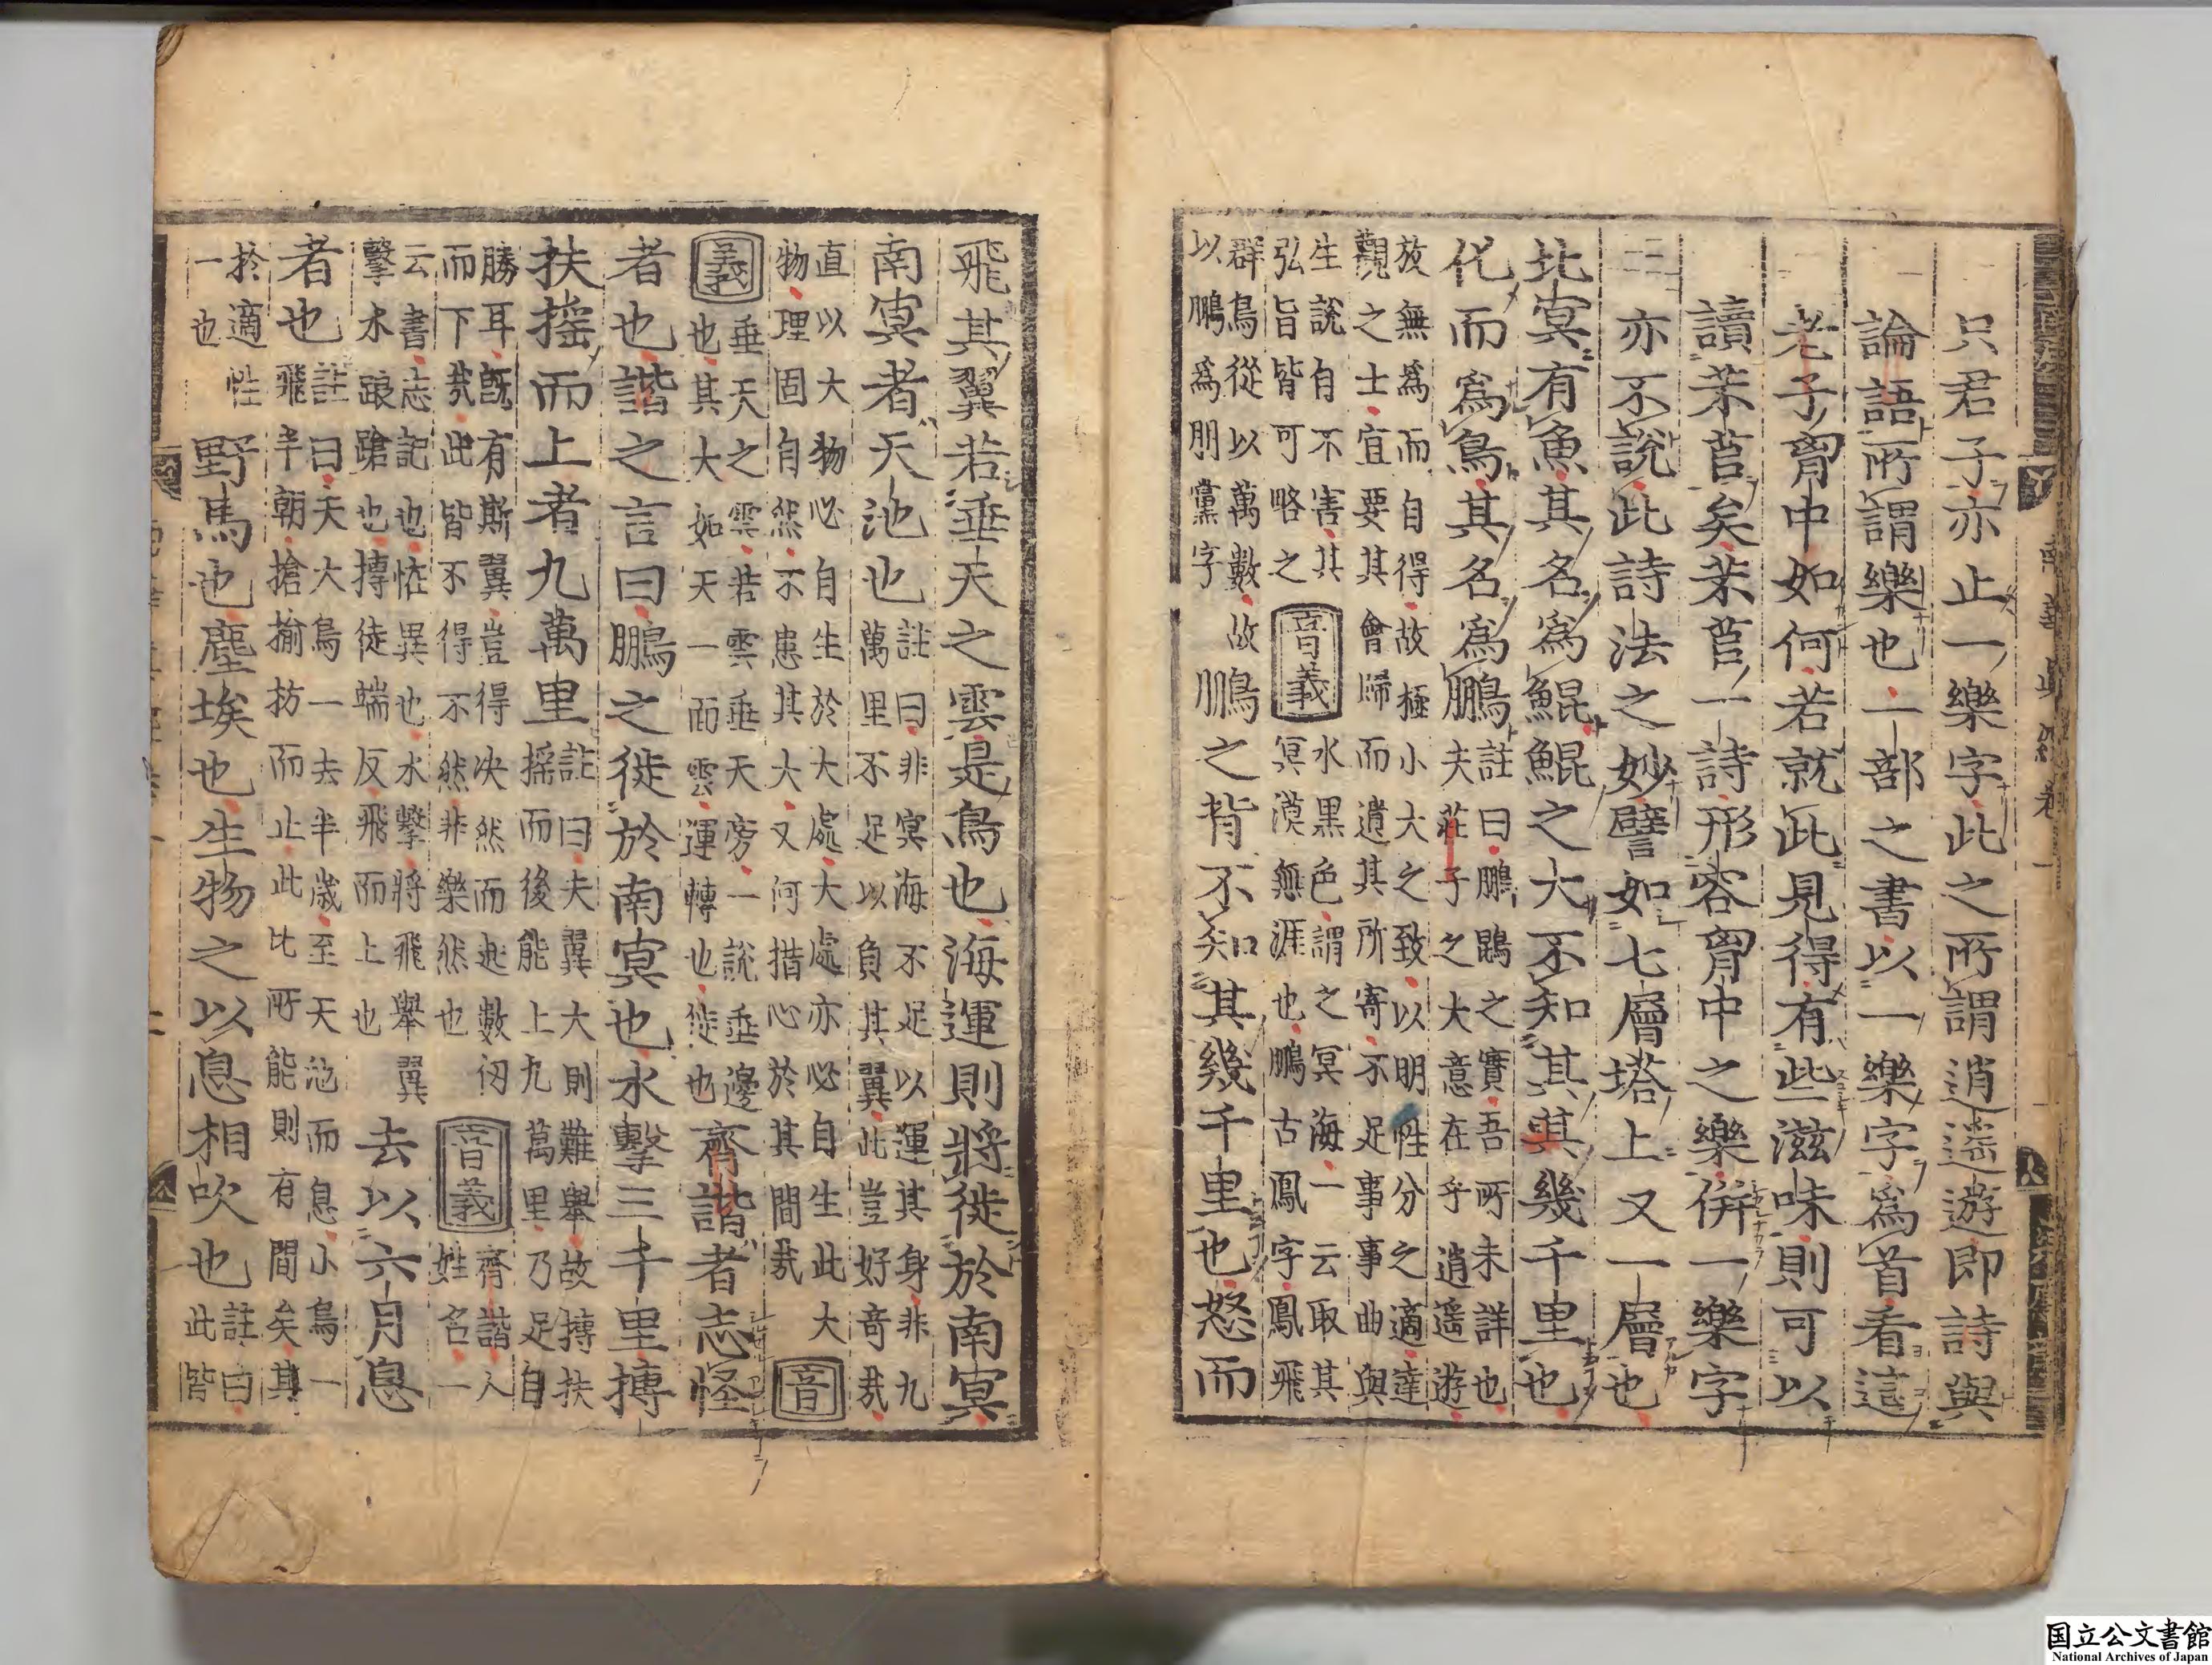 南華眞經卷一
只君子亦止一樂字此之所謂逍遥遊即詩與
論語所謂樂也一部之書以一樂字爲首看這
老子胷中如何若就此見得有些滋味則可以
讀芣苢矣芣苢一詩形容胷中之樂併一樂字
亦不說此詩法之妙譬如七層塔上又一層也
北㝠有魚其名爲鯤鯤之大不知其其幾千里也
化而爲鳥其名爲鵬註曰鵬鵾之實吾所未詳也夫莊子之大意在乎逍遥遊
放無爲而自得故極小大之致以明性分之適達觀之士宜要其會歸而遺其所寄不足事事曲與
生說自不害其弘旨皆可略之音義水黑色謂之冥海一云取其冥漠無涯也鵬古鳳字鳳飛
群鳥從以萬數故以鵬爲朋黨字鵬之背不知其幾千里也怒而
飛其翼若垂天之雲是鳥也海運則將徙於南㝠
南㝠者天池也註曰非㝠海不足以運其身非九萬里不足以負其翼此豈好奇㢤
直以大物必自生於大處大處亦必自生此大物理固自然不患其大又何措心於其間㢤音
義垂天之雲若雲垂天旁一說垂邊也其大如天一面雲運轉也徙也齊諧者志怪
者也諧之言曰鵬之徙於南㝠也水擊三千里摶
扶摇而上者九萬里註曰夫翼大則難舉故摶扶摇而後能上九萬里乃足自
勝耳旣有斯翼豈得决然而起數仞而下㢤此皆不得不然非樂然也音義齊諧人姓名一
云書志記也怪異也水擊將飛舉翼擊水踉蹌也摶徒端反飛而上也去以六月息
者也註曰天大鳥一去半歲至天池而息小鳥一飛半朝搶揄枋而止此比所能則有間矣其
於適性一也野馬也塵埃也生物之以息相吹也註曰此皆
国立公文書館
National Archives of Japan